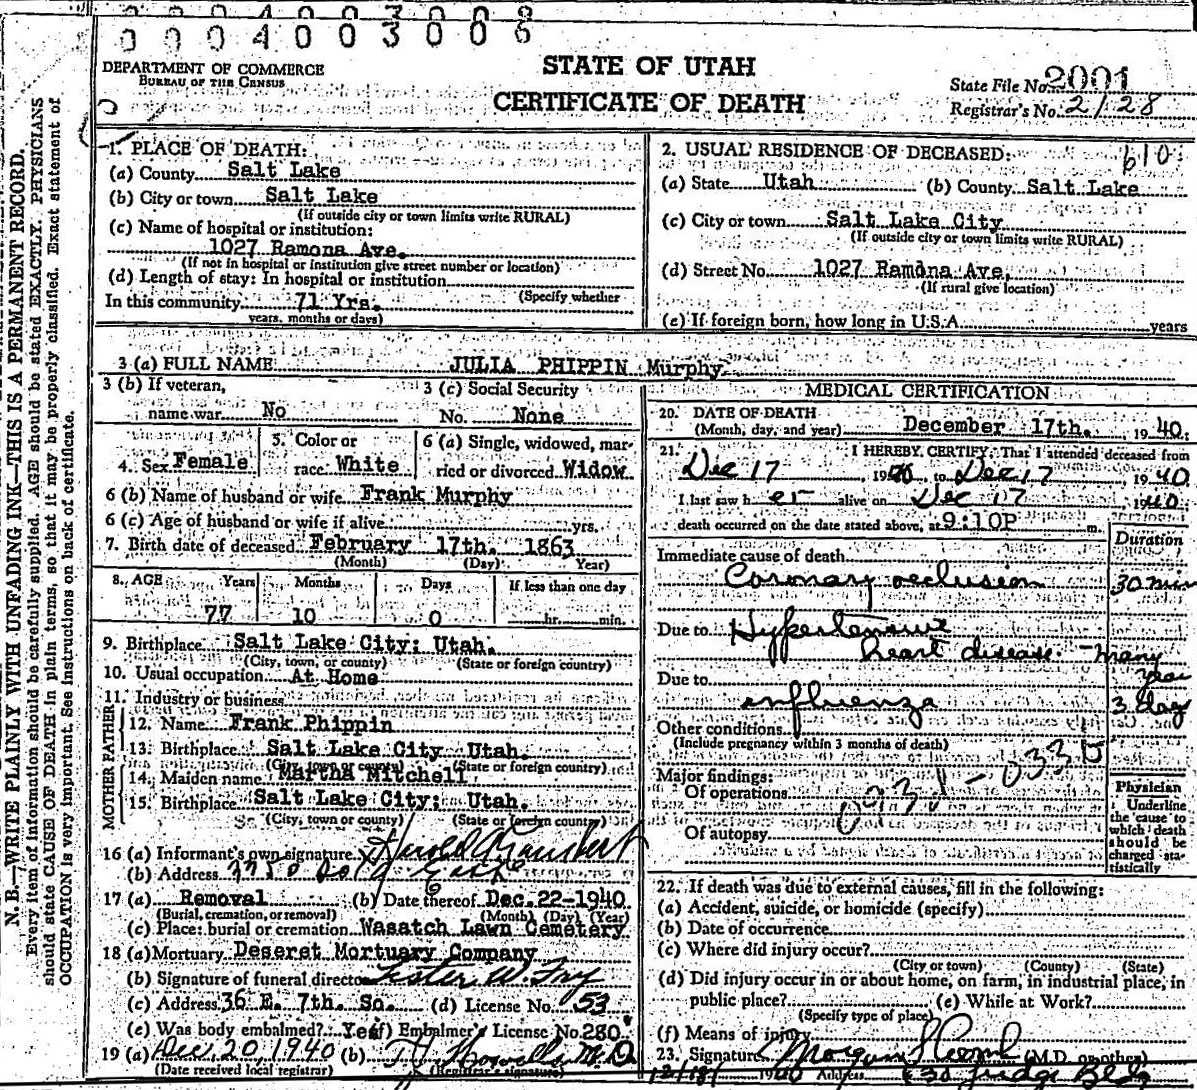 0004003008
DEPARTMENT OF COMMERCE
BUREAU OF THE CENSUS
STATE OF UTAH
CERTIFICATE OF DEATH
State File No. 2001
Registrar's No. 2128
N.B.—WRITE PLAINLY WITH UNFADING INK—THIS IS A PERMANENT RECORD.
Every item of information should be carefully supplied. AGE should be stated EXACTLY. PHYSICIANS
should state CAUSE OF DEATH in plain terms, so that it may be properly classified. Exact statement of
OCCUPATION is very important. See instructions on back of certificate.
1. PLACE OF DEATH:
(a) County Salt Lake
(b) City or town Salt Lake
(If outside city or town limits write RURAL)
(c) Name of hospital or institution:
1027 Ramona Ave.
(If not in hospital or institution give street number or location)
(d) Length of stay: In hospital or institution
(Specify whether
In this community 71 Yrs.
years, months or days)
2. USUAL RESIDENCE OF DECEASED: 610
(a) State Utah (b) County Salt Lake
(c) City or town Salt Lake City
(If outside city or town limits write RURAL)
(d) Street No. 1027 Ramona Ave.
(If rural give location)
(e) If foreign born, how long in U.S.A. years
3 (a) FULL NAME JULIA PHIPPIN Murphy
3 (b) If veteran, name war No
3 (c) Social Security No. None
4. Sex Female
5. Color or race White
6 (a) Single, widowed, married or divorced Widow
6 (b) Name of husband or wife Frank Murphy
6 (c) Age of husband or wife if alive yrs.
7. Birth date of deceased February 17th. 1863
(Month) (Day) Year)
8. AGE Years Months Days If less than one day
77 10 0 hr. min.
9. Birthplace Salt Lake City; Utah.
(City, town, or county) (State or foreign country)
10. Usual occupation At Home
11. Industry or business
FATHER
12. Name Frank Phippin
13. Birthplace Salt Lake City Utah.
(City, town or county) (State or foreign country)
MOTHER
14. Maiden name Martha Mitchell
15. Birthplace Salt Lake City; Utah.
(City, town or county) (State or foreign country)
16 (a) Informant's own signature Harold
(b) Address East
17 (a) Removal (b) Date thereof Dec. 22-1940
(Burial, cremation, or removal) (Month) (Day) (Year)
(c) Place: burial or cremation Wasatch Lawn Cemetery
18 (a) Mortuary Deseret Mortuary Company
(b) Signature of funeral director Lester W.
(c) Address 36 E. 7th. So. (d) License No. 53
(e) Was body embalmed? Yes (f) Embalmer's License No. 280
19 (a) Dec 20, 1940 (b) M.D.
(Date received local registrar) (Registrar's signature)
MEDICAL CERTIFICATION
20. DATE OF DEATH
(Month, day, and year) December 17th. , 1940.
21. I HEREBY CERTIFY, That I attended deceased from
Dec 17 , 1940, to Dec 17 , 1940
I last saw her alive on Dec 17 , 1940.
death occurred on the date stated above, at 9:10P m.
Duration
Immediate cause of death
Coronary occlusion 30 min
Due to Hypertensive
heart disease - many
year
Due to
influenza 3 days
Other conditions
(Include pregnancy within 3 months of death)
Major findings:
Of operations
Of autopsy
Physician
Underline
the cause to
which death
should be
charged sta-
tistically
22. If death was due to external causes, fill in the following:
(a) Accident, suicide, or homicide (specify)
(b) Date of occurrence
(c) Where did injury occur?
(City or town) (County) (State)
(d) Did injury occur in or about home, on farm, in industrial place, in
public place? (e) While at Work?
(Specify type of place)
(f) Means of injury
23. Signature Morgan (M.D. or other)
12/18/ 1940 Address Judge Bldg